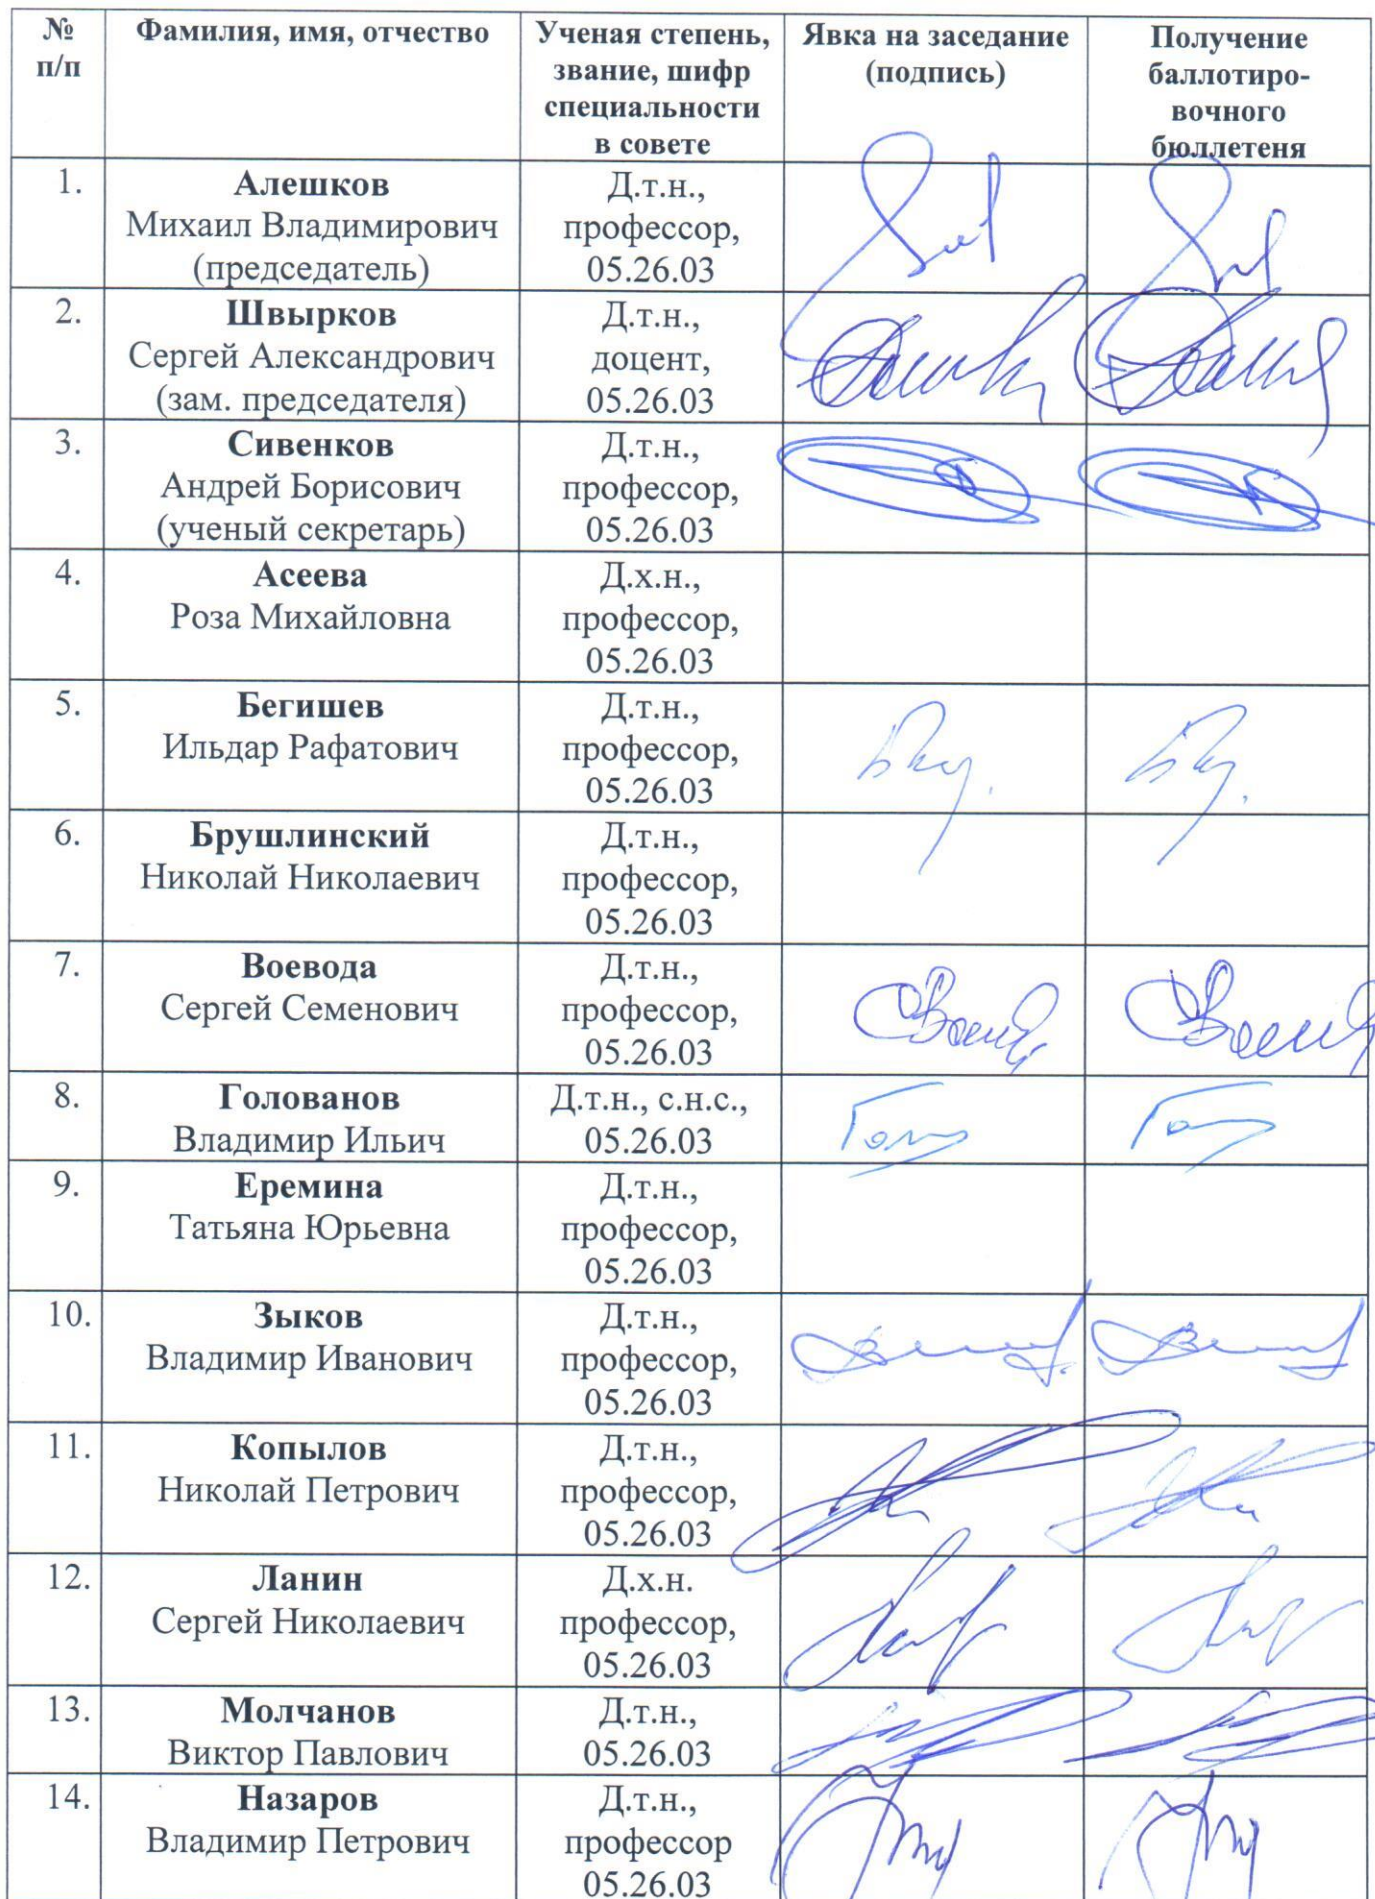 № п/п
Фамилия, имя, отчество
Ученая степень,
звание, шифр
специальности
в совете
Явка на заседание
(подпись)
Получение
баллотиро-
вочного
бюллетеня
1.
Алешков
Михаил Владимирович
(председатель)
Д.т.н.,
профессор,
05.26.03
2.
Швырков
Сергей Александрович
(зам. председателя)
Д.т.н.,
доцент,
05.26.03
3.
Сивенков
Андрей Борисович
(ученый секретарь)
Д.т.н.,
профессор,
05.26.03
4.
Асеева
Роза Михайловна
Д.х.н.,
профессор,
05.26.03
5.
Бегишев
Ильдар Рафатович
Д.т.н.,
профессор,
05.26.03
6.
Брушлинский
Николай Николаевич
Д.т.н.,
профессор,
05.26.03
7.
Воевода
Сергей Семенович
Д.т.н.,
профессор,
05.26.03
8.
Голованов
Владимир Ильич
Д.т.н., с.н.с.,
05.26.03
9.
Еремина
Татьяна Юрьевна
Д.т.н.,
профессор,
05.26.03
10.
Зыков
Владимир Иванович
Д.т.н.,
профессор,
05.26.03
11.
Копылов
Николай Петрович
Д.т.н.,
профессор,
05.26.03
12.
Ланин
Сергей Николаевич
Д.х.н.
профессор,
05.26.03
13.
Молчанов
Виктор Павлович
Д.т.н.,
05.26.03
14.
Назаров
Владимир Петрович
Д.т.н.,
профессор
05.26.03